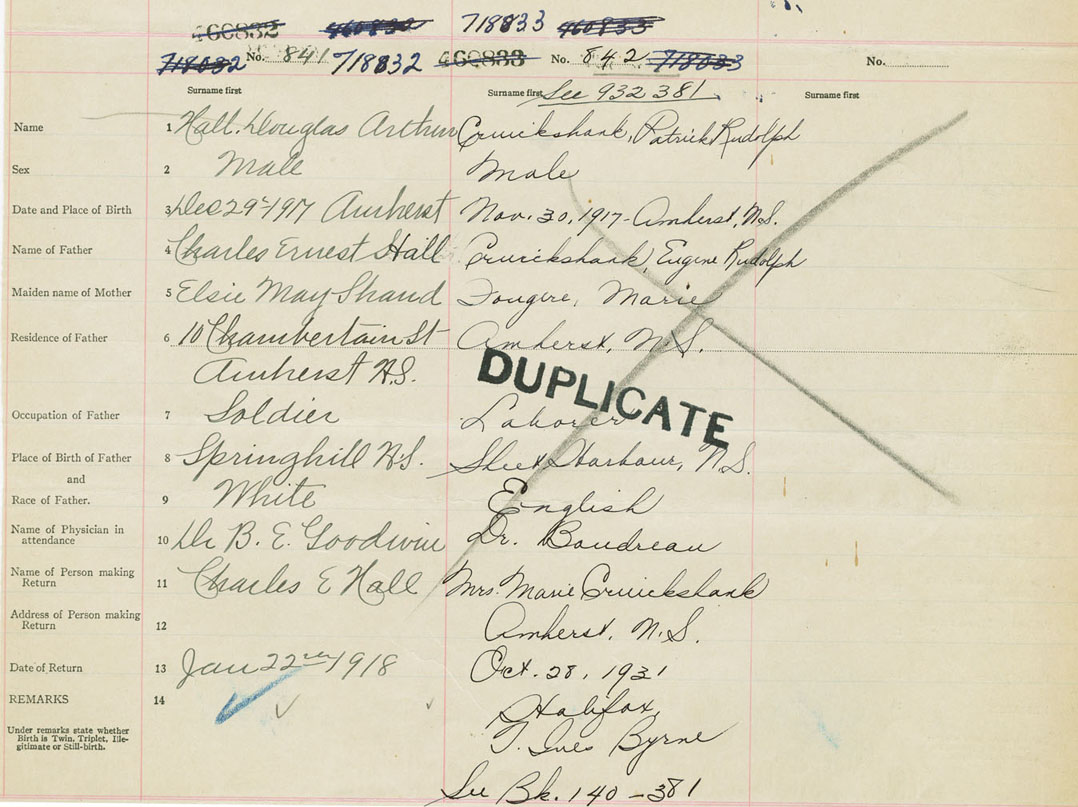 460832 460833 718833 460833
718832 No. 841 718832 460833 No. 842 718833 No.
Surname first Surname first See 932 381 Surname first
Name 1 Hall. Douglas Arthur Cruickshank, Patrick Rudolph
Sex 2 Male Male
Date and Place of Birth 3 Dec 29th 1917 Amherst Nov. 30, 1917 - Amherst, N.S.
Name of Father 4 Charles Ernest Hall Cruickshank, Eugene Rudolph
Maiden name of Mother 5 Elsie May Shand Fougere, Marie
Residence of Father 6 10 Chamberlain St Amherst, N.S.
Amherst N.S.
DUPLICATE
Occupation of Father 7 Soldier Laborer
Place of Birth of Father 8 Springhill N.S. Sheet Harbour, N.S.
and
Race of Father. 9 White English
Name of Physician in
attendance 10 Dr B. E. Goodwin Dr. Boudreau
Name of Person making
Return 11 Charles E Hall Mrs. Marie Cruickshank
Address of Person making
Return 12 Amherst, N.S.
Date of Return 13 Jan 22nd 1918 Oct. 28, 1931
REMARKS 14 Halifax
Under remarks state whether
Birth is Twin, Triplet, Ille-
gitimate or Still-birth.
T. Ives Byrne
See Bk. 140 - 381